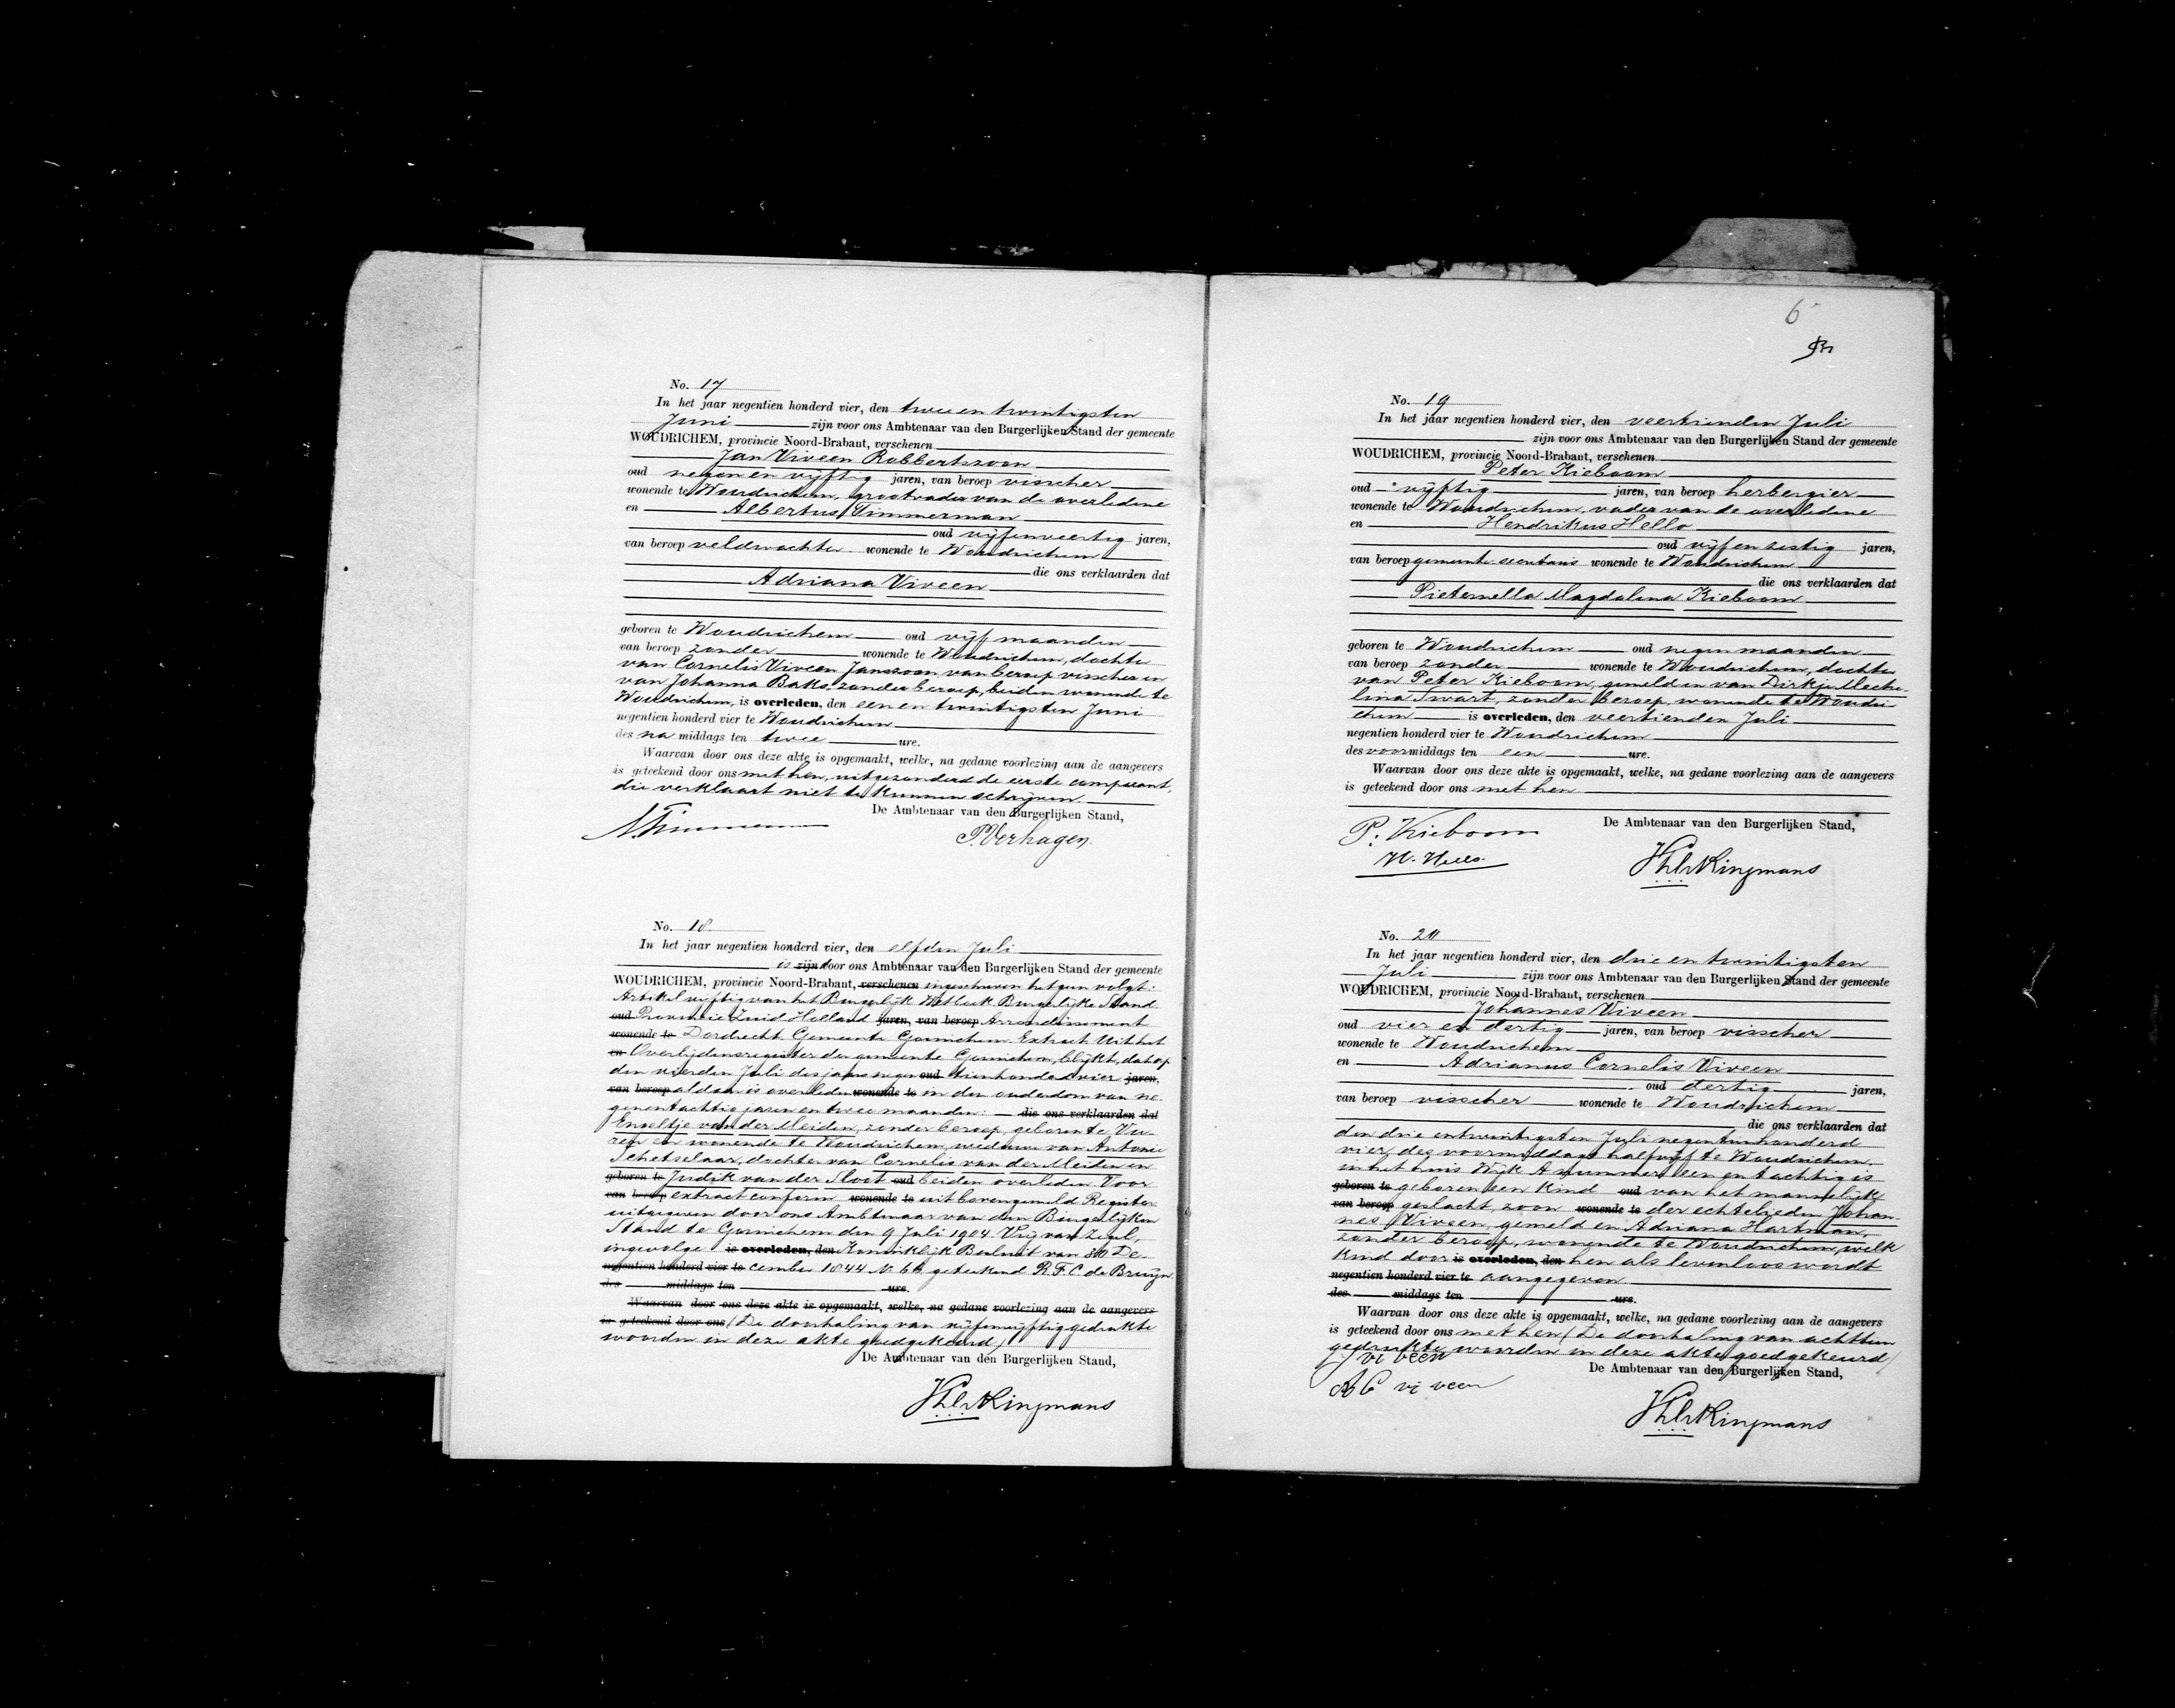 No. 17
In het jaar negentien honderd vier, den twee en twintigsten
Juni zijn voor ons Ambtenaar van den Burgerlijken Stand der gemeente
WOUDRICHEM, provincie Noord-Brabant, verschenen
Jan Viveen Robbertszoon
oud negen en vijftig jaren, van beroep visscher
wonende te Woudrichem, grootvader van de overledene
en Albertus Timmerman
oud vijfenveertig jaren,
van beroep veldwachter wonende te Woudrichem
die ons verklaarden dat
Adriana Viveen
geboren te Woudrichem oud vijf maanden
van beroep zonder wonende te Woudrichem, dochter
van Cornelis Viveen Janszoon, van beroep visscher en
van Johanna Baks, zonder beroep, beiden wonende te
Woudrichem, is overleden, den een en twintigsten Juni
negentien honderd vier te Woudrichem
des na middags ten twee ure.
Waarvan door ons deze akte is opgemaakt, welke, na gedane voorlezing aan de aangevers
is geteekend door ons met hen, uitgezonderd de eerste comparant,
die verklaart niet te kunnen schrijven.
De Ambtenaar van den Burgerlijken Stand,
P. Verhagen.
No. 18.
In het jaar negentien honderd vier, den elfden Juli
is zijn door ons Ambtenaar van den Burgerlijken Stand der gemeente
WOUDRICHEM, provincie Noord-Brabant, verschenen ingeschreven hetgeen volgt:
Artikel vijftig van het Burgerlijk Wetboek Burgerlijke Stand
oud Provincie Zuid Holland jaren, van beroep Arrondissement
wonende te Dordrecht Gemeente Gorinchem. Extract Uit het
en Overlijdensregister der gemeente Gorinchem, blijkt, dat op
den vierden Juli des jaars negen oud tienhonderd vier jaren,
van beroep aldaar is overleden wonende te in den ouderdom van ne-
genentachtig jaren en twee maanden: die ons verklaarden dat
Engeltje van der Meiden, zonder beroep, geboren te Vu-
ren en wonende te Woudrichem, weduwe van Antonie
Schetselaar, dochter van Cornelis van der Meiden en
geboren te Judik van der Sloot oud beiden overleden. Voor
van beroep extract conform wonende te uit bovengemeld Register
uitgegeven door ons Ambtenaar van den Burgerlijken
Stand te Gorinchem den 9 Juli 1904. Vrij van Zegel,
ingevolge is overleden, den Koninklijk Besluit van 30 De-
negentien honderd vier te cember 1844 N. 66 geteekend R. F. C. de Bruijn
des middags ten ure.
Waarvan door ons deze akte is opgemaakt, welke, na gedane voorlezing aan de aangevers
is geteekend door ons / De doorhaling van vijfenvijftig gedrukte
woorden in deze akte goedgekeurd /
De Ambtenaar van den Burgerlijken Stand,
6
No. 19
In het jaar negentien honderd vier, den veertienden Juli
zijn voor ons Ambtenaar van den Burgerlijken Stand der gemeente
WOUDRICHEM, provincie Noord-Brabant, verschenen
Peter Kieboom
oud vijftig jaren, van beroep herbergier
wonende te Woudrichem, vader van de overledene
en Hendrikus Hello
oud vijf en zestig jaren,
van beroep gemeente-secretaris wonende te Woudrichem
die ons verklaarden dat
Pieternella Magdalena Kieboom
geboren te Woudrichem oud negen maanden
van beroep zonder wonende te Woudrichem, dochter
van Peter Kieboom, gemeld en van Dirkje Meche-
lina Swart, zonder beroep, wonende te Woudri-
chem is overleden, den veertienden Juli
negentien honderd vier te Woudrichem
des voormiddags ten een ure.
Waarvan door ons deze akte is opgemaakt, welke, na gedane voorlezing aan de aangevers
is geteekend door ons met hen
De Ambtenaar van den Burgerlijken Stand,
P. Kieboom
H. Hello.
No. 20
In het jaar negentien honderd vier, den drie en twintigsten
Juli zijn voor ons Ambtenaar van den Burgerlijken Stand der gemeente
WOUDRICHEM, provincie Noord-Brabant, verschenen
Johannes Viveen
oud vier en dertig jaren, van beroep visscher
wonende te Woudrichem
en Adrianus Cornelis Viveen
oud dertig jaren,
van beroep visscher wonende te Woudrichem
die ons verklaarden dat
den drie entwintigsten Juli negentienhonderd
vier, des voormiddags half vijf te Woudrichem
in het huis Wijk A nummer een en tachtig is
geboren te geboren een kind oud van het mannelijk
van beroep geslacht, zoon wonende te der echtelieden Johan-
nes Viveen, gemeld en Adriana Hartman,
zonder beroep, wonende te Woudrichem, welk
kind door is overleden, den hen als levenloos wordt
negentien honderd vier te aangegeven
des middags ten ure.
Waarvan door ons deze akte is opgemaakt, welke, na gedane voorlezing aan de aangevers
is geteekend door ons met hen / De doorhaling van achttien
gedrukte woorden in deze akte goedgekeurd /
J vi veen
De Ambtenaar van den Burgerlijken Stand,
A C vi veen